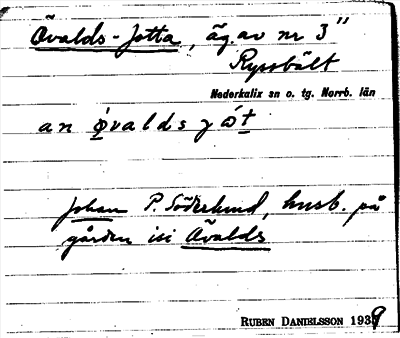 Ävalds-Jotta, äg. av nr 3"
Ryssbält
Nederkalix sn o. tg. Norrb. län
an øvalds γ ót
Johan P. Söderlund, husb. på
gården isi Ävalds
RUBEN DANIELSSON 1939